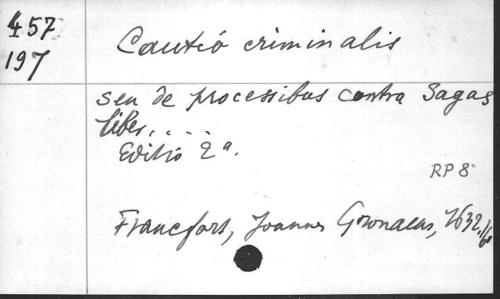 457
197
Cautió criminalis
seu de processibus contra Sagas
liber....
Editió 2a.
RP 8°
Francfort, Joannes Gronaeus, 1632.